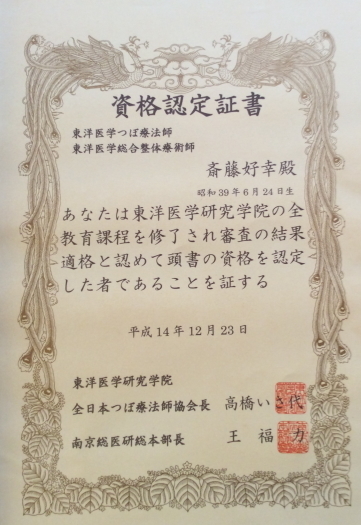 資格認定証書
東洋医学つぼ療法師
東洋医学総合整体療術師
斎藤好幸殿
昭和39年6月24日生
あなたは東洋医学研究学院の全
教育課程を修了され審査の結果
適格と認めて頭書の資格を認定
した者であることを証する
平成14年12月23日
東洋医学研究学院
全日本つぼ療法師協会長 高橋いさ代
南京総医研総本部長 王福力